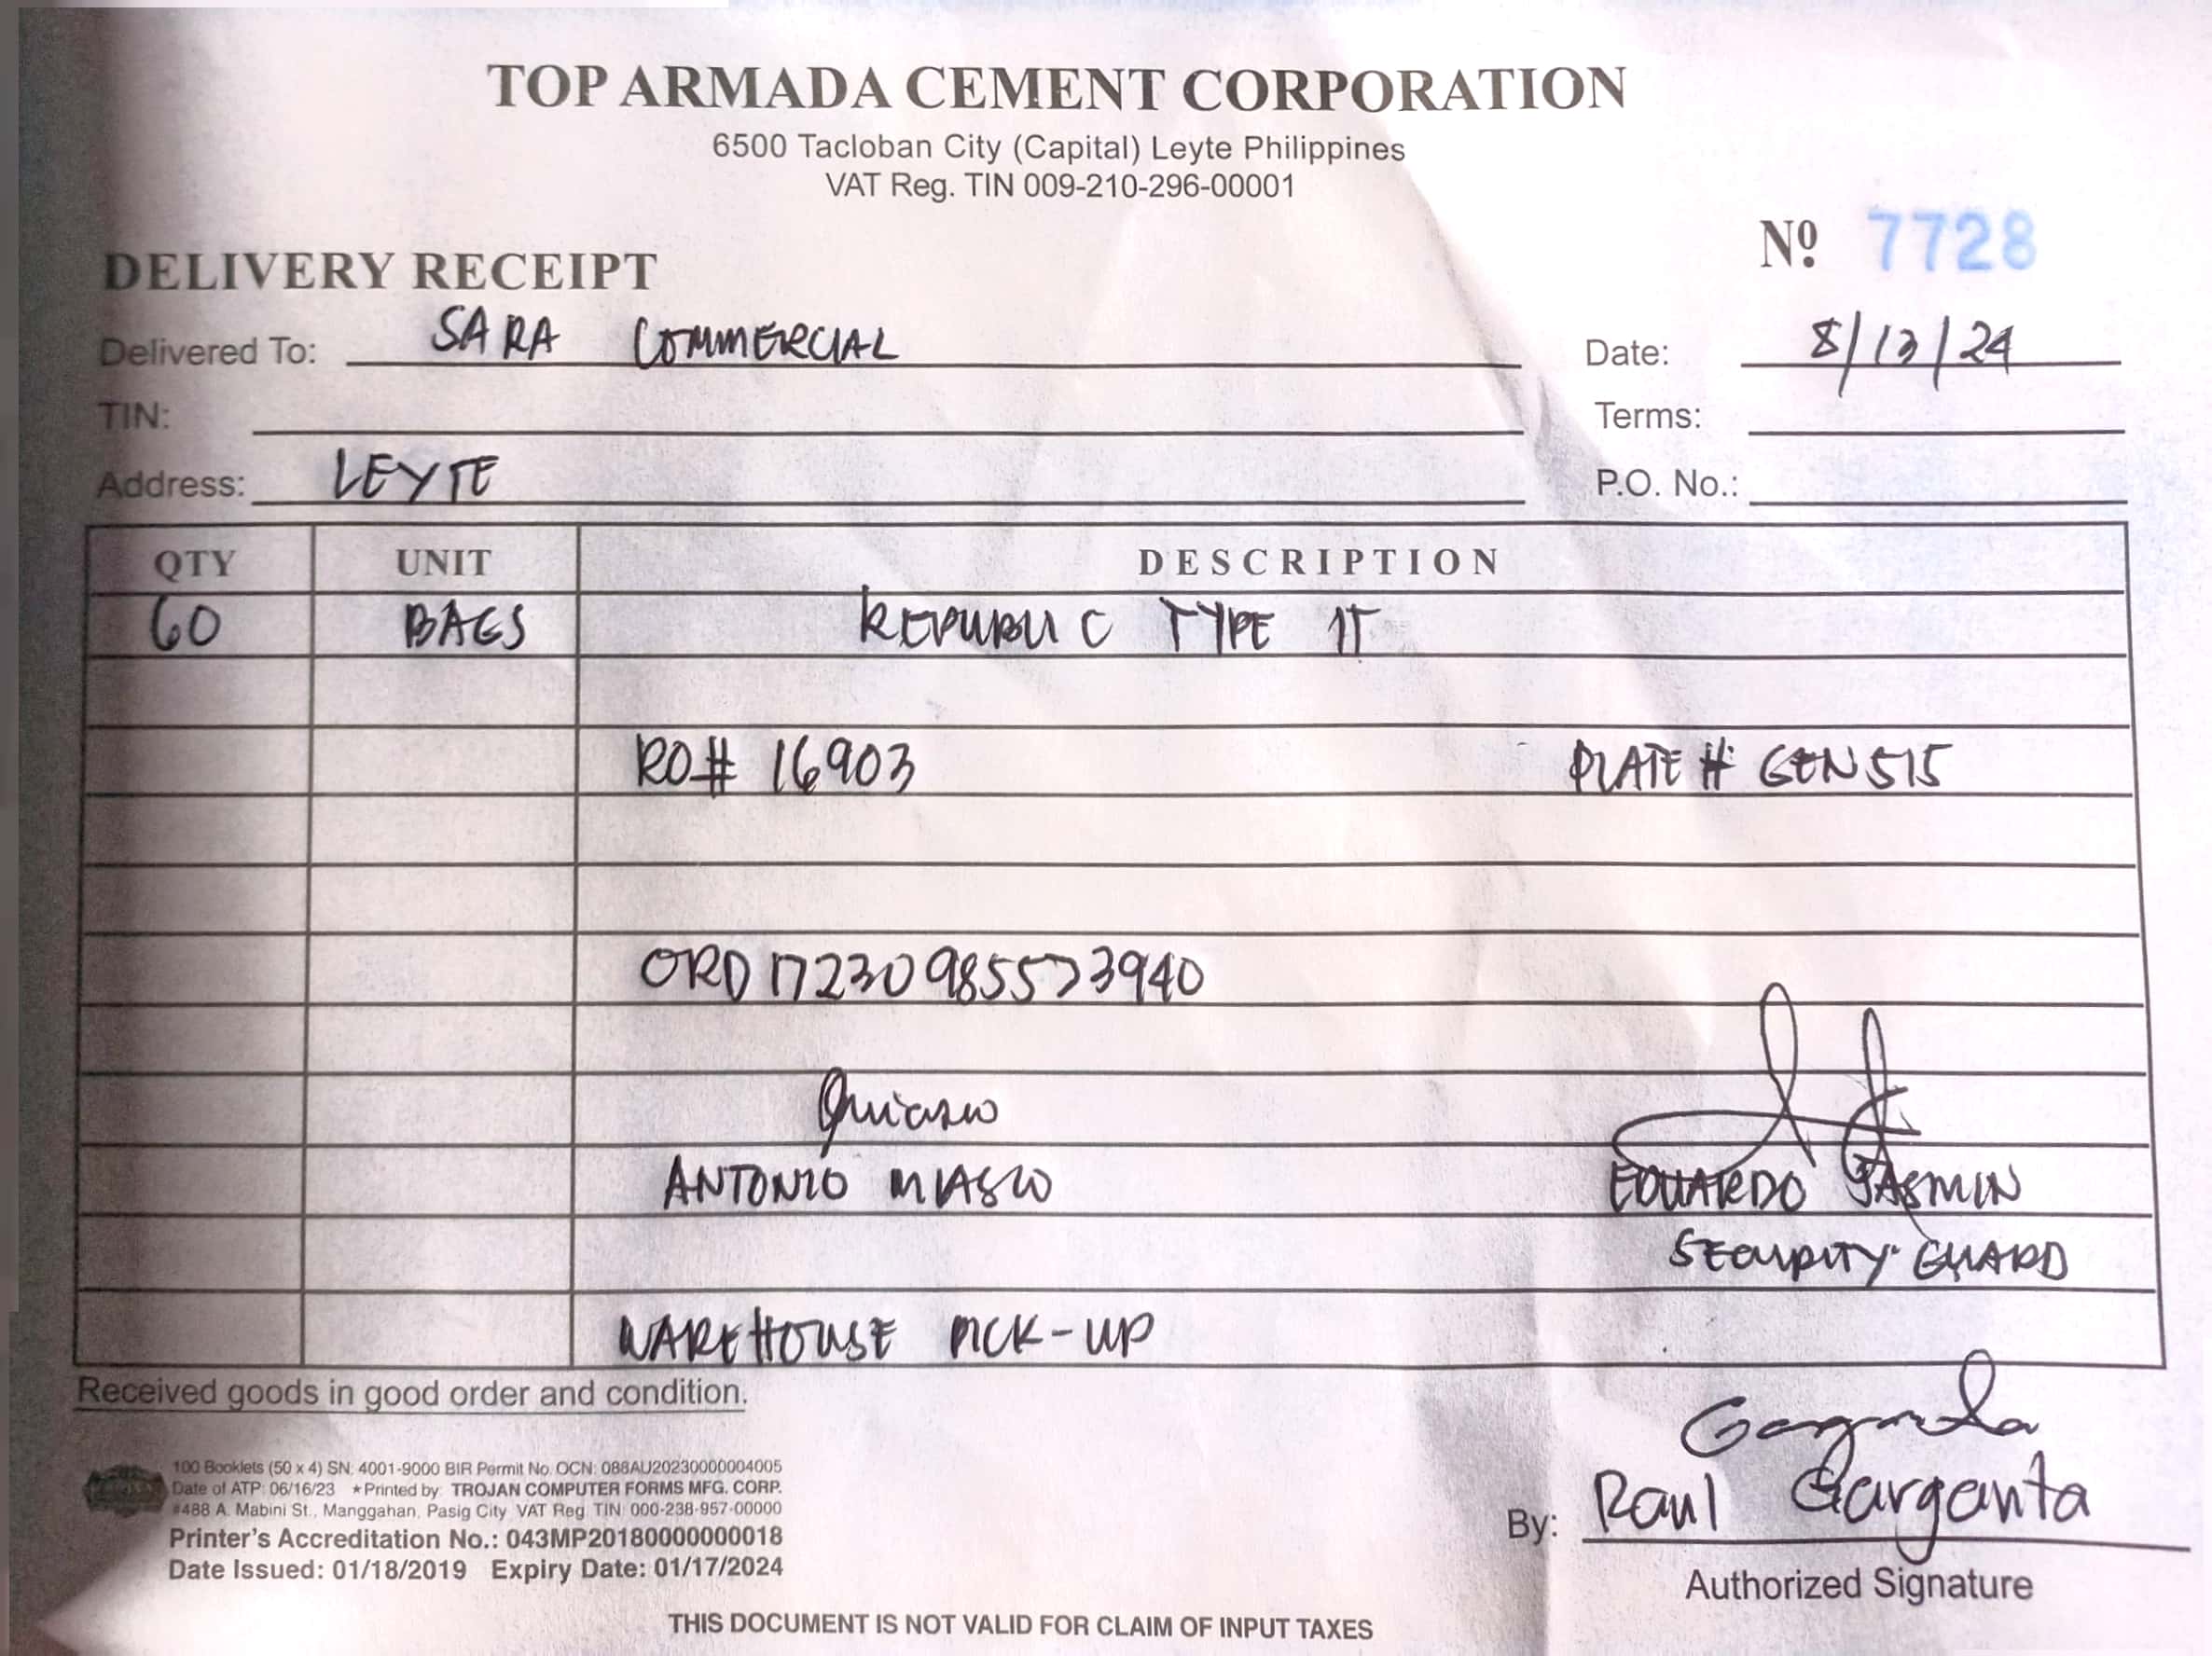 TOP ARMADA CEMENT CORPORATION
6500 Tacloban City (Capital) Leyte Philippines
VAT Reg. TIN 009-210-296-00001
Nº 7728
DELIVERY RECEIPT
Delivered To: SARA COMMERCIAL Date: 8/13/24
TIN: Terms:
Address: LEYTE P.O. No.:
QTY UNIT DESCRIPTION
60 BAGS REPUBLIC TYPE 1T
RO# 16903 PLATE # GEN 515
ORD 17230985573940
ANTONIO EDUARDO JASMIN
SECURITY GUARD
WAREHOUSE PICK-UP
Received goods in good order and condition.
100 Booklets (50 x 4) SN: 4001-9000 BIR Permit No. OCN: 088AU20230000004005
Date of ATP: 06/16/23 ★Printed by: TROJAN COMPUTER FORMS MFG. CORP.
#488 A. Mabini St., Manggahan, Pasig City VAT Reg. TIN: 000-238-957-00000
Printer's Accreditation No.: 043MP20180000000018
Date Issued: 01/18/2019 Expiry Date: 01/17/2024
By: Raul Garganta
Authorized Signature
THIS DOCUMENT IS NOT VALID FOR CLAIM OF INPUT TAXES